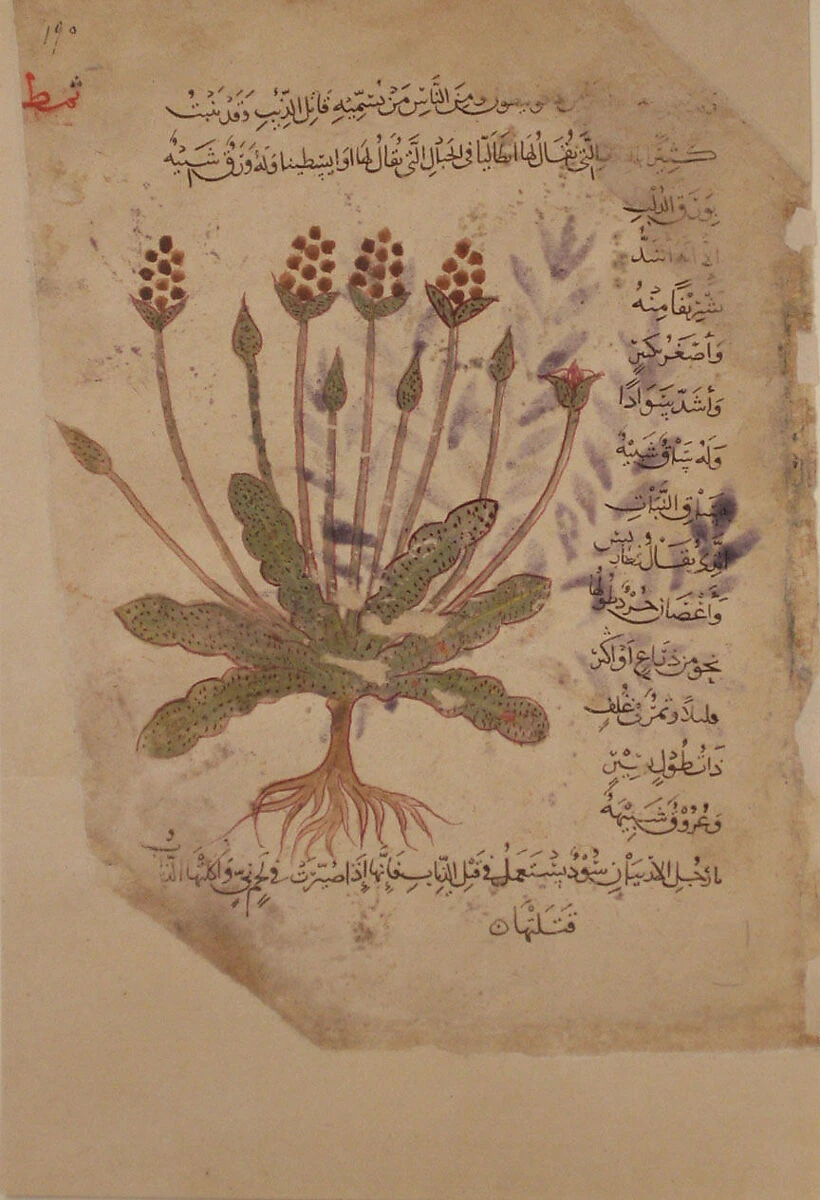 ١٩٠
ثمط
ومن الناس من يُسَمِّيهِ قَاتِل الذِّئبِ وَقَد يَنبتُ
كَثِيرًا التي يُقَالُ لهَا ايطاليا في الجبَالِ التَّي يُقَالُ لهَا اوايسطينا وَلهُ وَرَقٌ شَبِيهٌ
بِوَرَقِ الدُّلبِ
إلا أنه أشَدُّ
تَشْرِيفًا مِنْهُ
وَأصْغَرُ بكَثِيرٍ
وَأشَدّ سَوَادًا
وَلَهُ سَاقٌ شَبِيهٌ
بساقِ النَّبَاتِ
الَّذِي يُقَالُ
وَأَغْصَانٌ جُرْدٌ طُولُهَا
نحو مِن ذِرَاعٍ أوْ اكْثر
قليلاً وثمرٌ في غُلفٍ
ذَات طُولٍ يَسِيرٍ
وَعُرُوقٌ شَبِيهَةٌ
بارْجُلِ الاربيان سُوْدٌ يُسْتَعمَلُ في قَتلِ الذِّئابِ فَإنَّهَا إذَا صُيّرَتْ في لَحمٍ نيٍ وَاكَلَتْهَا الذئابُ
قَتَلَتْهَا